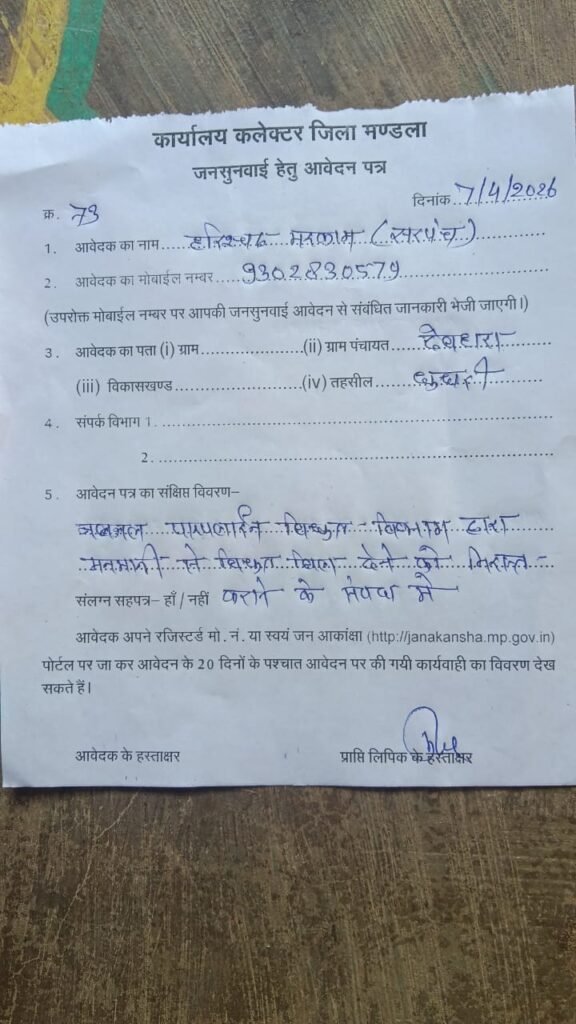 कार्यालय कलेक्टर जिला मण्डला
जनसुनवाई हेतु आवेदन पत्र
क्र. 73 दिनांक 7/4/2026
1. आवेदक का नाम..... मरकाम (सरपंच)
2. आवेदक का मोबाईल नम्बर 9302830579
(उपरोक्त मोबाईल नम्बर पर आपकी जनसुनवाई आवेदन से संबंधित जानकारी भेजी जाएगी।)
3. आवेदक का पता (i) ग्राम..........(ii) ग्राम पंचायत देवहारा
(iii) विकासखण्ड..........(iv) तहसील घुघरी
4. संपर्क विभाग 1...........
2...........
5. आवेदन पत्र का संक्षिप्त विवरण–
पाइपलाईन विद्युत विभाग द्वारा
मनमानी से विद्युत बिल देने को निरस्त
संलग्न सहपत्र– हाँ / नहीं कराने के संबंध में
आवेदक अपने रजिस्टर्ड मो. नं. या स्वयं जन आकांक्षा (http://janakansha.mp.gov.in)
पोर्टल पर जा कर आवेदन के 20 दिनों के पश्चात आवेदन पर की गयी कार्यवाही का विवरण देख
सकते हैं।
आवेदक के हस्ताक्षर प्राप्ति लिपिक के हस्ताक्षर